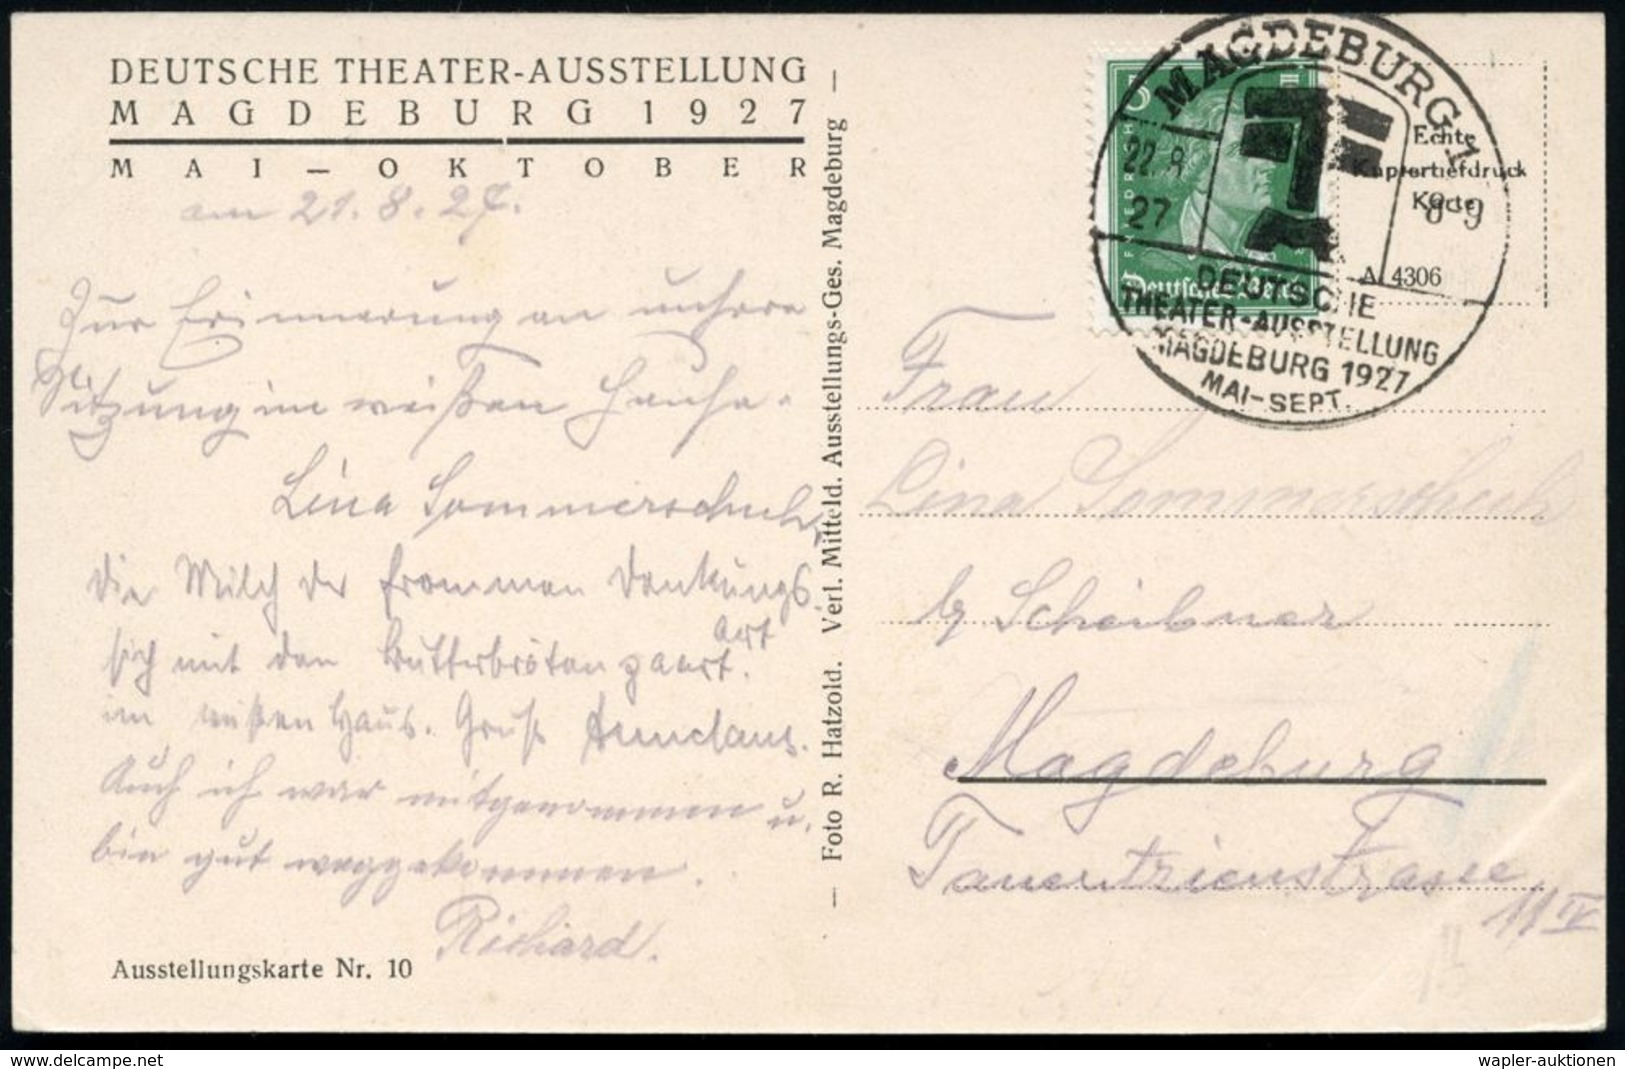 DEUTSCHE THEATER-AUSSTELLUNG
MAGDEBURG 1927
MAI – OKTOBER
am 21.8.27.
Zur Erinnerung an unsere
Sitzung im weißen Hause.
Lina Sommerschuh,
Die Milch der frommen Denkungs
art
sich mit den Butterbröten paart.
im weißen Haus. Gruß
Auch ich war mitgenommen u.
bin gut weggekommen.
Richard.
Ausstellungskarte Nr. 10
— Foto R. Hatzold. Verl. Mitteld. Ausstellungs-Ges. Magdeburg —
MAGDEBURG 1
22.8.
27
8-9
DEUTSCHE
THEATER-AUSSTELLUNG
MAGDEBURG 1927
MAI-SEPT.
FRIEDRICH
Deutsches Reich
Echte
Kupfertiefdruck
Karte
A 4306
Frau
Lina Sommerschuh
b/ Scheibner
Magdeburg
Tauentzienstrasse
11 IV
delcampe.net
wapler-auktionen